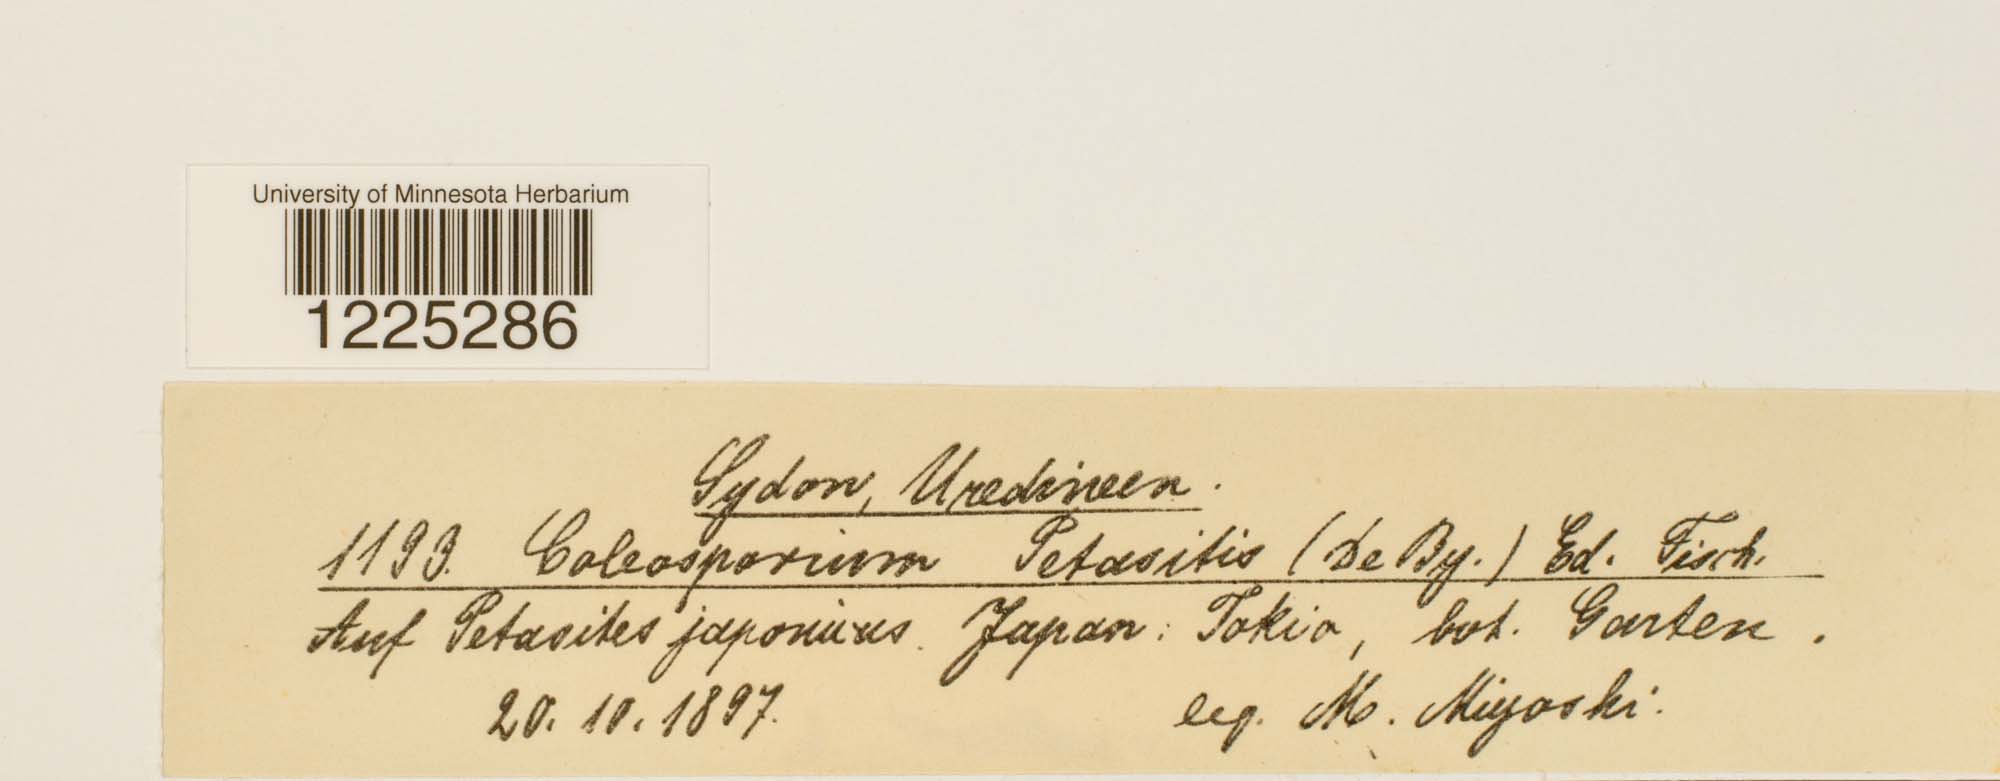 University of Minnesota Herbarium
1225286
Sydow, Uredineen.
1193. Coleosporium Petasitis (De By.) Ed. Fisch.
Auf Petasites japonicus. Japan: Tokio, bot. Garten.
20. 10. 1897. leg. M. Miyoshi.